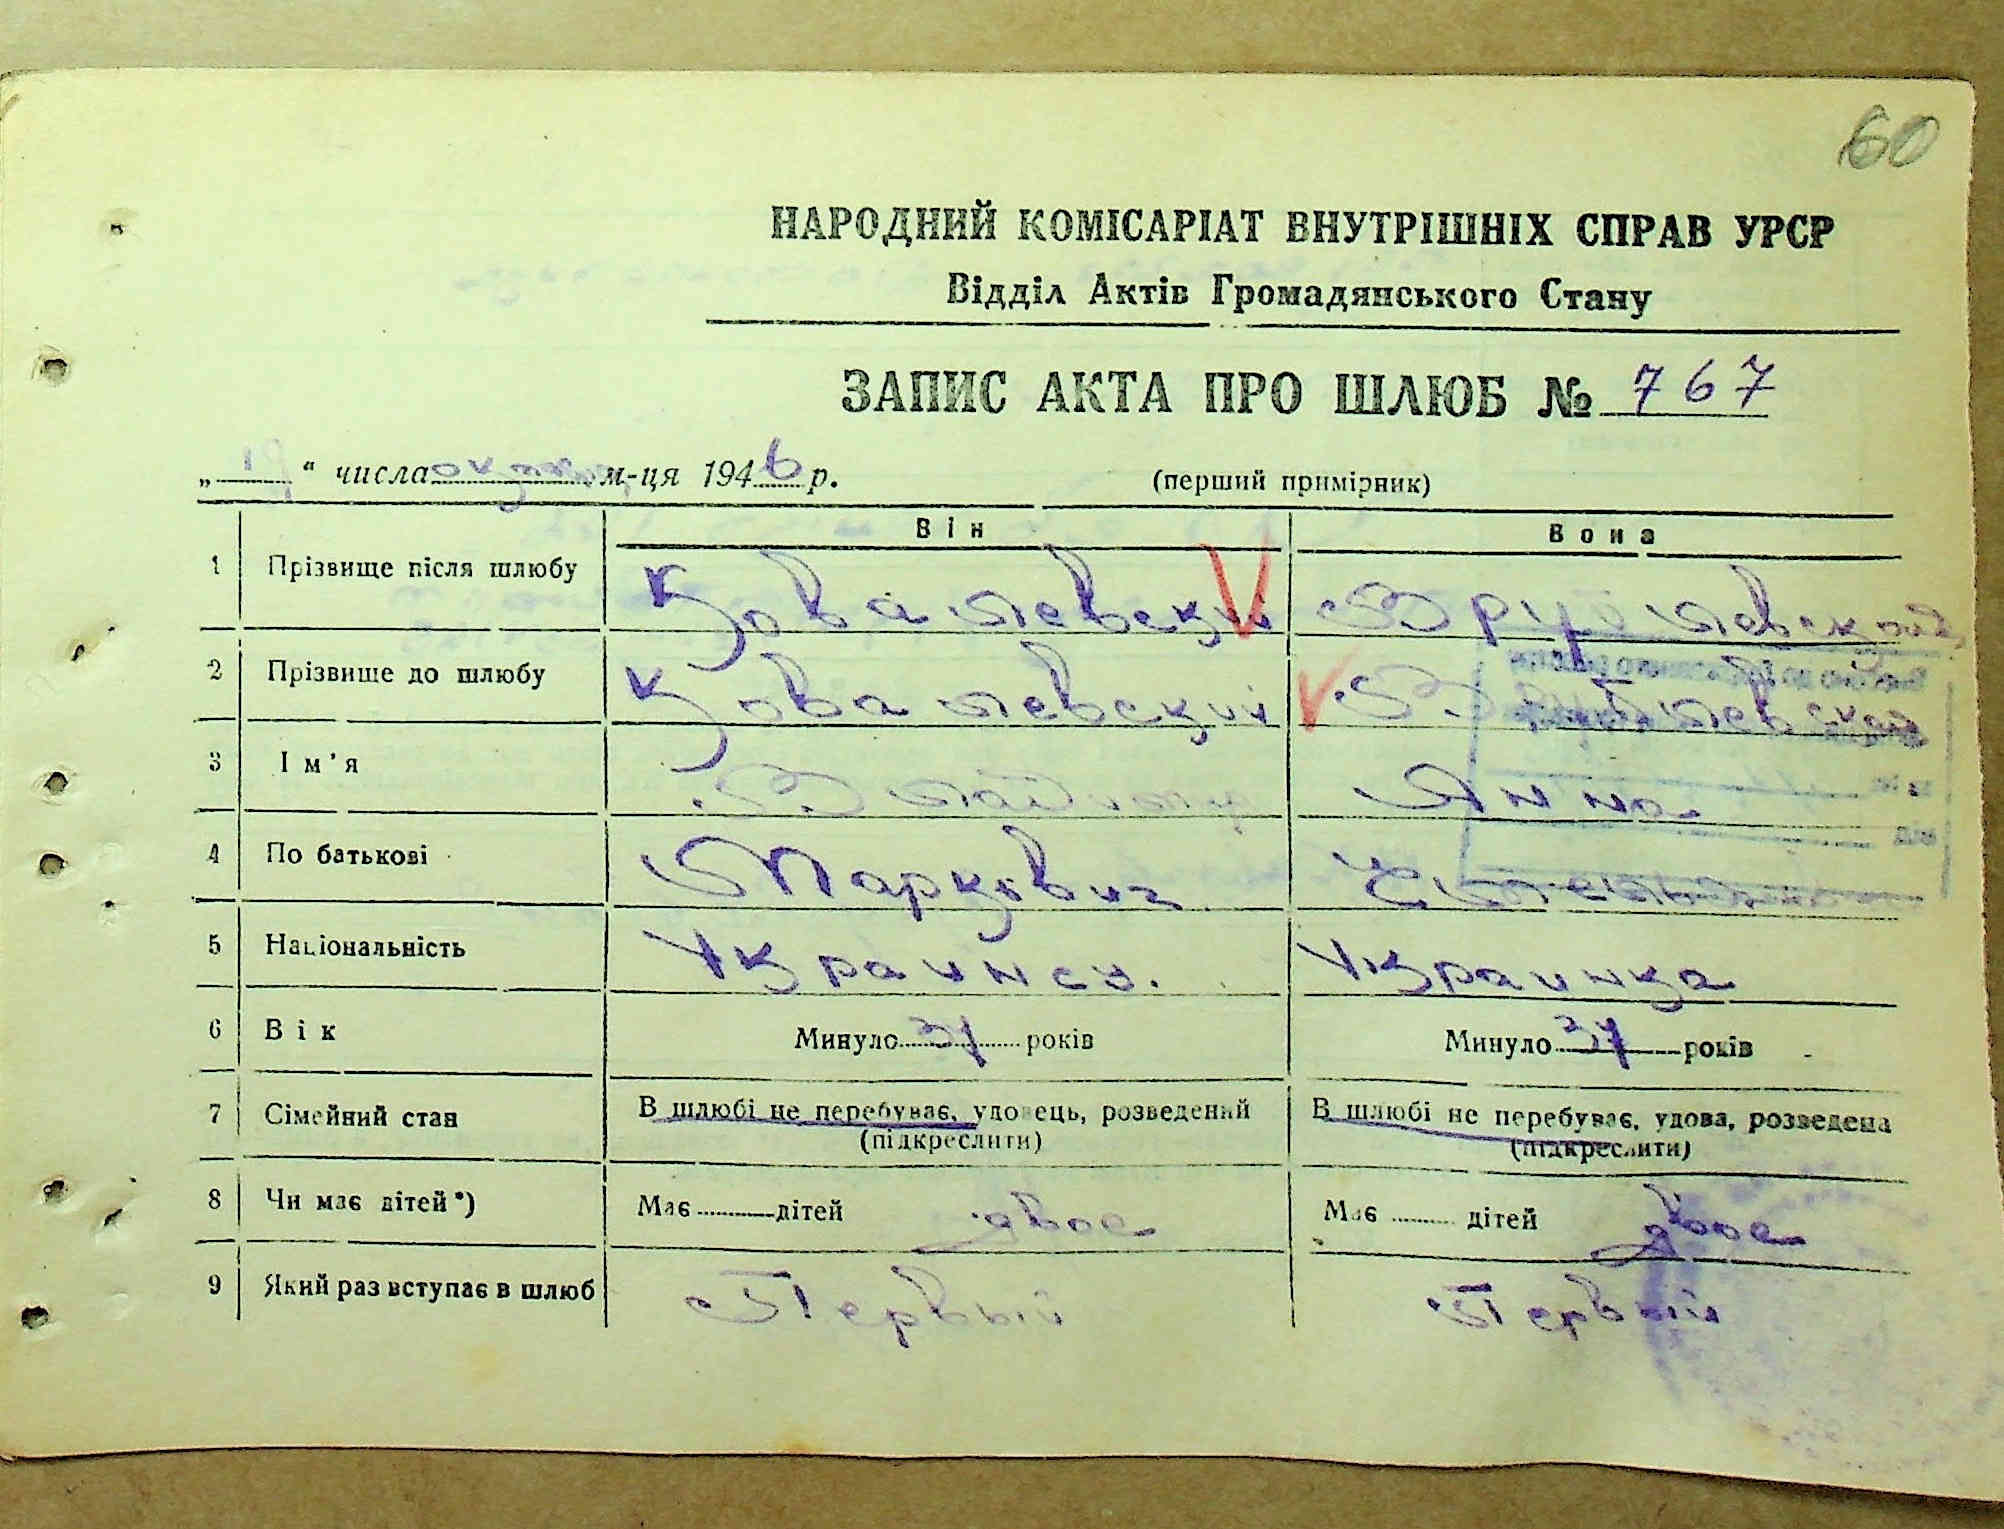 60
НАРОДНИЙ КОМІСАРІАТ ВНУТРІШНІХ СПРАВ УРСР
Відділ Актів Громадянського Стану
ЗАПИС АКТА ПРО ШЛЮБ № 767
„ 1 “ числа м-ця 1946 р. (перший примірник)
Він Вона
1 Прізвище після шлюбу Ковалевский Врублевская
2 Прізвище до шлюбу Ковалевский Врублевская
3 Ім’я Владимир Анна
4 По батькові Маркович
5 Національність Украинец. Украинка
6 Вік Минуло 37 років Минуло 37 років
7 Сімейний стан В шлюбі не перебуває, удовець, розведений В шлюбі не перебуває, удова, розведена
(підкреслити) (підкреслити)
8 Чи має дітей*) Має дітей двое Має дітей двое
9 Який раз вступає в шлюб Первый Первый